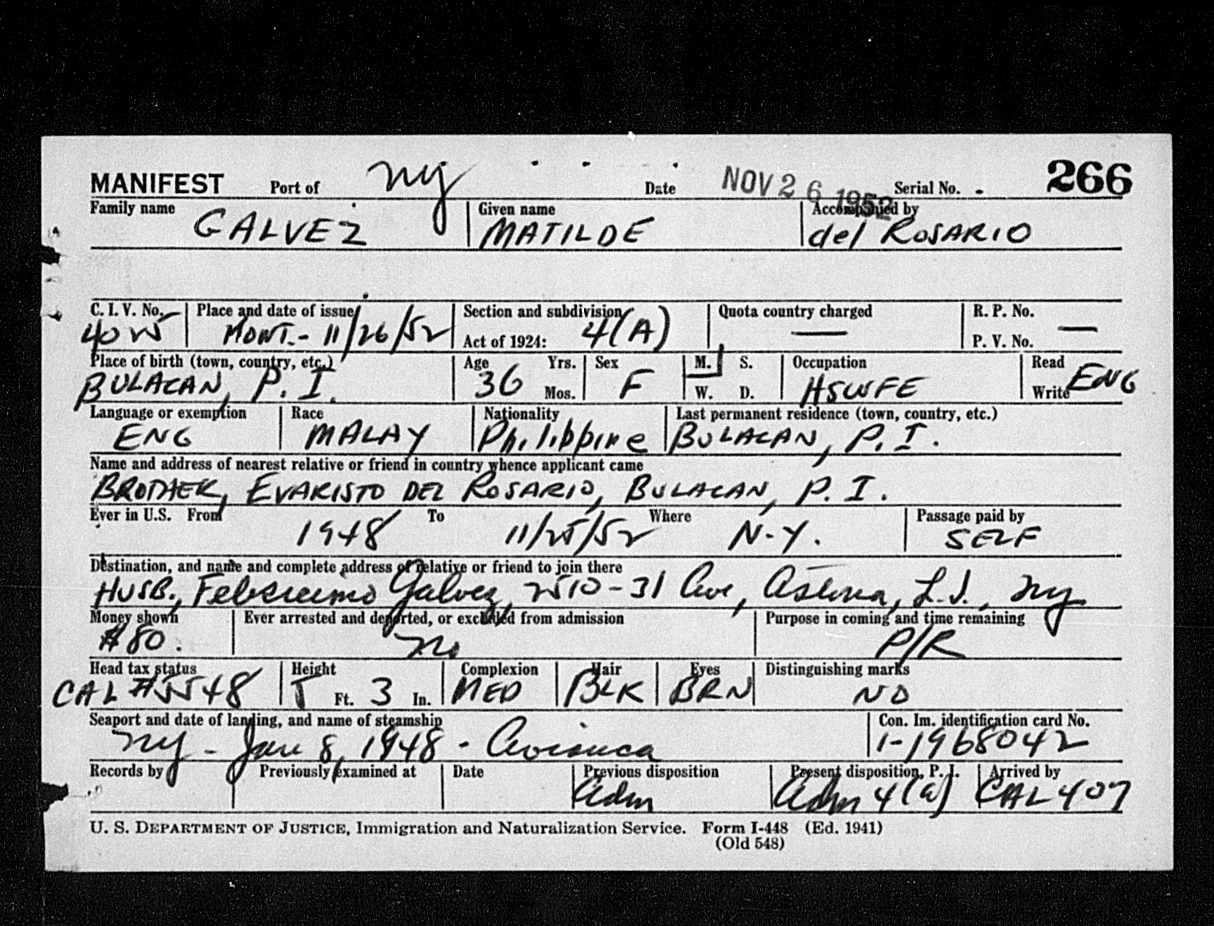 MANIFEST Port of NY Date NOV 26 1952 Serial No. 266
Family name Given name Accompanied by
GALVEZ MATILDE del ROSARIO
C. I. V. No. Place and date of issue Section and subdivision Quota country charged R. P. No.
MONT.- 11/26/52 Act of 1924: 4(A) — P. V. No. —
Place of birth (town, country, etc.) Age Yrs. Sex M. S. Occupation Read
BULACAN, P. I. 36 Mos. F W. D. HSWFE Write ENG
Language or exemption Race Nationality Last permanent residence (town, country, etc.)
ENG MALAY Philippine BULACAN, P. I.
Name and address of nearest relative or friend in country whence applicant came
BROTHER, EVARISTO DEL ROSARIO, BULACAN, P. I.
Ever in U.S. From To Where Passage paid by
1948 11/25/52 N.Y. SELF
Destination, and name and complete address of relative or friend to join there
HUSB., Galvez, 2510-31 Ave, Astoria, L.I., NY
Money shown Ever arrested and deported, or excluded from admission Purpose in coming and time remaining
$80. No P/R
Head tax status Height Complexion Hair Eyes Distinguishing marks
CAL #5548 5 Ft. 3 In. MED BLK BRN NO
Seaport and date of landing, and name of steamship Con. Im. identification card No.
NY - Jan 8, 1948 - 1-1968042
Records by Previously examined at Date Previous disposition Present disposition, P. I. Arrived by
Adm Adm 4(a) CAL 407
U. S. DEPARTMENT OF JUSTICE, Immigration and Naturalization Service. Form I-448 (Ed. 1941)
(Old 548)